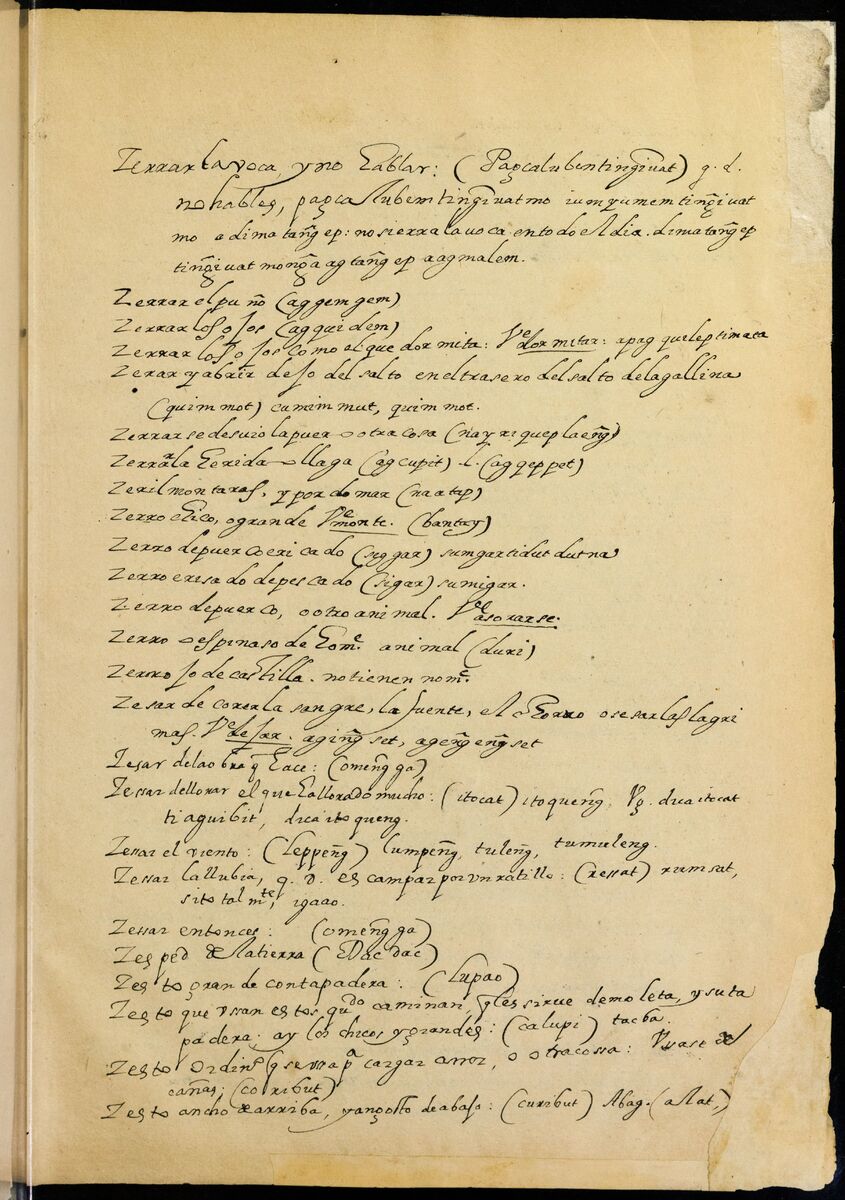 Zerrar la voca, y no hablar: (Paçcalubentingĩuat) q. d.
no hables, paçcalubemtingĩuatmo iumyumemtingĩuat
mo adimatang̃ep: no sierra la voca en todo el dia. dimatang̃ep
ting̃iuat mong̃a ag tang̃ep aagmalem.
Zerrar el puño (aggemgem)
Zerrar los ojos (agquidem)
Zerrar los ojos como el que dormita: Ve dormitar: apag quileptimata
Zerar y abrir de jo del salto en el trasero del salto de la gallina
(quimmot) cumimmut, quimmot.
Zerrarse desuio la puer otra cosa
Zerrar la herida o llaga (agcupit) l. (aggeppet)
Zeril montaras, y por domar (naatap)
Zerro chico, o grande Ve monte. (bantay)
Zerro de puerco ericado (siggar) sumgartidutdutna
Zerro erisado de pescado (sigar) sumigar.
Zerro de puerco, o otro animal. Ve asorarse.
Zerro o espinaso de home animal (duri)
Zerrojo de castilla. no tienen nome
Zesar de corer la sangre, la fuente, el chorro o sesar las lagri
mas. Ve dejar. aging̃set, ageng̃eng̃set
Zesar de la obra q̃ hace: (omeng̃ga)
Zessar de llorar el que ha llorado mucho: (itocat) itoqueng̃. Vg. dica itocat
tiaguibit, dica itoqueng.
Zessar el viento: (leppeng̃) lumpeng̃, tuleng̃, tumuleng.
Zessar la llubia, q. d. escampar por vn ratillo: (ressat) rumsat,
si totalmte, igaao.
Zessar entonces: (omeng̃ga)
Zesped de la tierra (Dac dac)
Zesto grande con tapadera: (lupao)
Zesto que vssan estos qudo caminan, q̃ les sirue de moleta, y su ta
padera; ay los chicos y grandes: (calupi) tacba.
Zesto ordino q̃ se vsa pa cargar arroz, o otra cossa: Vsase de
cañas; (coribut)
Zesto ancho de arriba, y angosto de abajo: (curibut) Abag. (alat,)